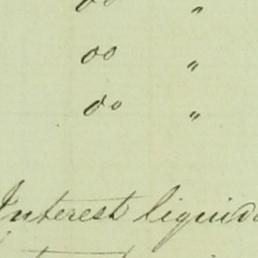 do "
do "
do "
Interest liquida